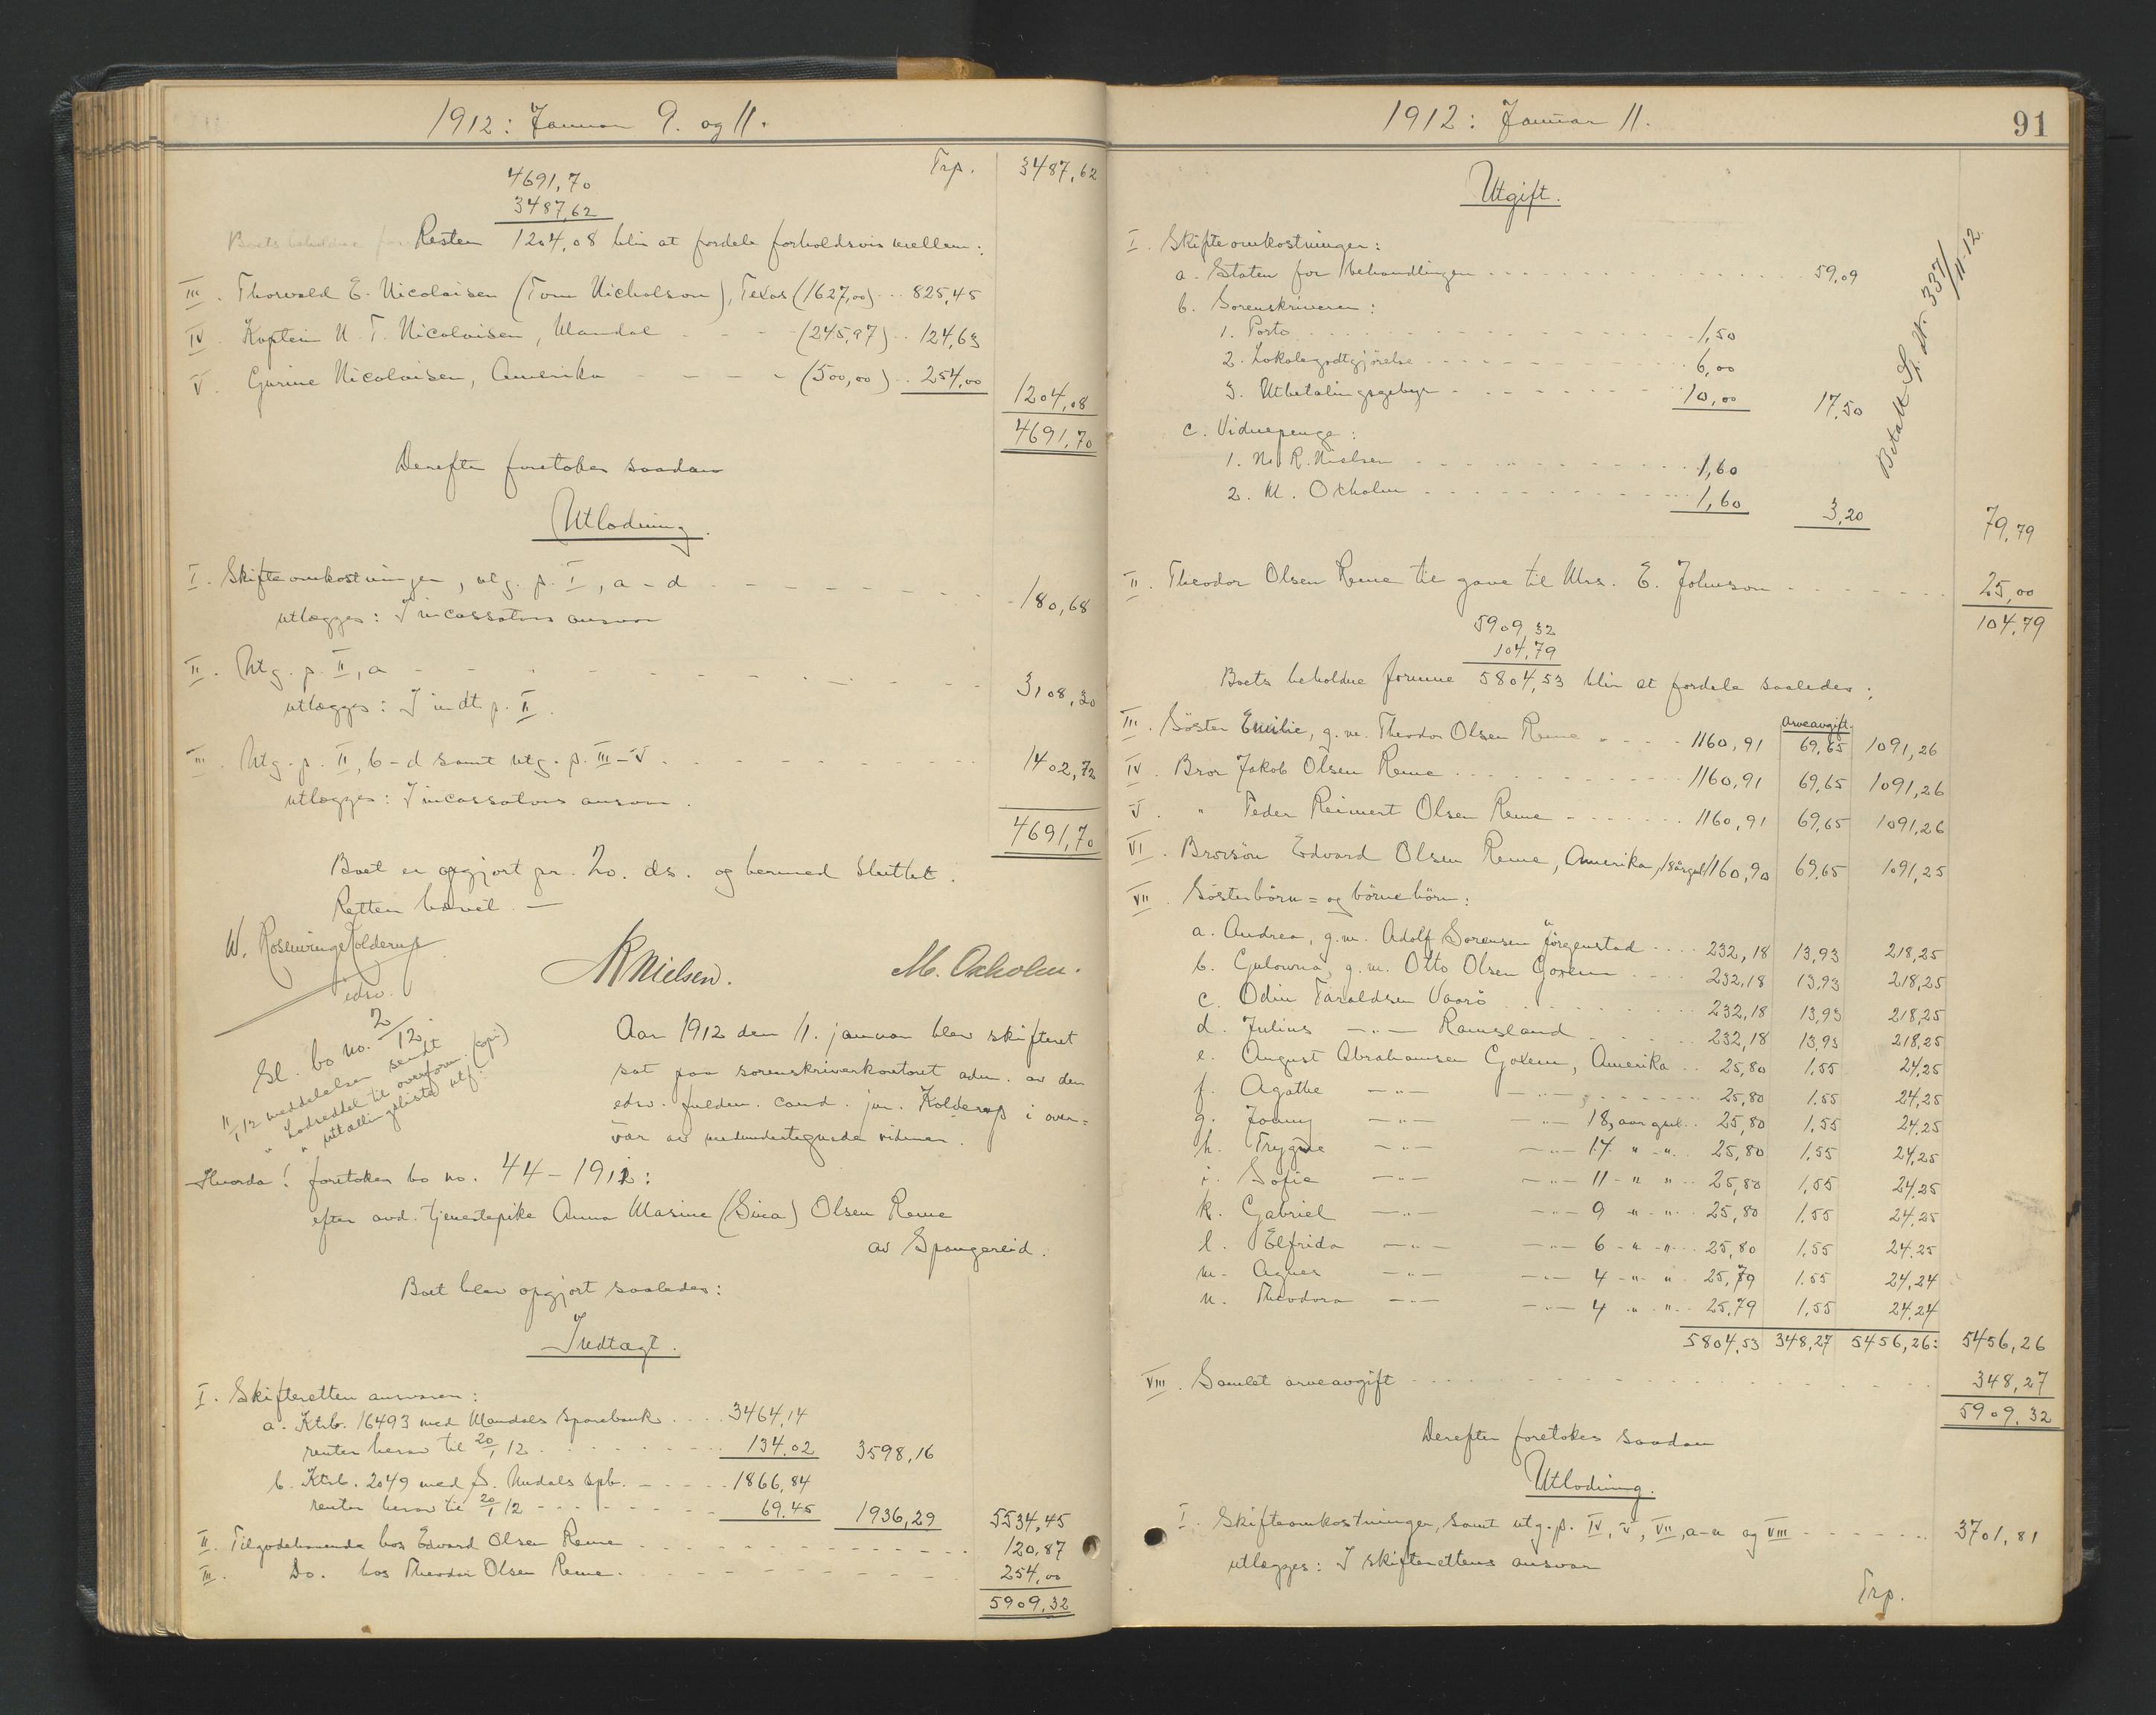 1912: Januar 9. og 11.
Trp. 3487,62
4691,70
3487,62
Resten 1204,08 blir at fordele forholdsvis mellem:
III. Thorvald E. Nicolaisen (Tom Nicholson), Texas (1627,00) 825,45
IV. Kaptein N. T. Nicolaisen, Mandal (245,97) 124,63
V. Gurine Nicolaisen, Amerika (500,00) 254,00 1204,08
4691,70
Derefter foretokes saadan
Utlodning.
I. Skifteomkostninger, utg. p. I, a-d 180,68
utlægges: I incassators ansvar
II. Utg. p. II, a 3108,30
utlægges: I indt. p. II.
III. Utg. p. II, b-d samt utg. p. III-V 1402,72
utlægges: I incassators ansvar.
4691,70
Boet er opgjort pr. 20. ds. og hermed sluttet.
Retten hævet. —
W. Rosenvinge Kolderup
edsv.
NRNielsen.
M. Oxholm.
Sl. bo no. 2/12.
11/1 12 meddelelser sendt
" Lodseddel til overform. (copi)
" " uttællingsliste utf.
Aar 1912 den 11. januar blev skifteret
sat paa sorenskriverkontoret adm. av den
edsv. fuldm. cand. jur. Kolderup i over=
vær av medundertegnede vidner.
Hvorda! foretokes bo no. 44 - 1911:
efter avd. tjenestepike Anna Marine (Sina) Olsen Reme
av Spangereid.
Boet blev opgjort saaledes:
Indtægt.
I. Skifteretten ansvaren:
a. Ktrb. 16493 med Mandals sparebank 3464,14
renter herav til 20/1 12 134.02 3598,16
b. Ktrb. 2049 med S. Undals spb. 1866,84
renter herav til 20/1 12 69.45 1936,29 5534,45
II. Tilgodehavende hos Edvard Olsen Reme 120,87
III. Do. hos Theodor Olsen Reme 254,00
5909,32
1912: Januar 11.
91
Utgift.
I. Skifteomkostninger:
a. Staten for behandlingen 59,09
b. Sorenskriveren:
1. Porto 1,50
2. Lokalegodtgjörelse 6,00
3. Utbetalingsgebyr 10,00 17,50
c. Vidnepenge:
1. N. R. Nielsen 1,60
2. M. Oxholm 1,60 3,20 79,79
II. Theodor Olsen Reme til gave til Mrs. E. Johnson 25,00
104,79
5909,32
104,79
Boets beholdne formue 5804,53 blir at fordele saaledes:
Arveavgift.
III. Söster Emilie, g.m. Theodor Olsen Reme 1160,91 69,65 1091,26
IV. Bror Jakob Olsen Reme 1160,91 69,65 1091,26
V. " Peder Reimert Olsen Reme 1160,91 69,65 1091,26
VI. Brorsön Edvard Olsen Reme, Amerika, 18 årgl. 1160,90 69,65 1091,25
VII. Sösterbörn= og börnebörn:
a. Andrea, g.m. Adolf Sorensen Jörgenstad 232,18 13,93 218,25
b. Gulowna, g.m. Otto Olsen Gorem 232,18 13,93 218,25
c. Odin Taraldsen Vaarö 232,18 13,93 218,25
d. Julius —"— Ramsland 232,18 13,93 218,25
e. August Abrahamsen Goxem, Amerika 25,80 1,55 24,25
f. Agathe —"— —"— 25,80 1.55 24,25
g. Jonny —"— —"— 18, aar gul. 25,80 1,55 24.25
h. Trygve —"— —"— 14 " " 25,80 1,55 24,25
i. Sofie —"— —"— 11 " " 25,80 1,55 24,25
k. Gabriel —"— —"— 9 " " 25,80 1.55 24.25
l. Elfrida —"— —"— 6 " " 25,80 1,55 24.25
m. Agnes —"— —"— 4 " " 25,79 1.55 24,24
n. Theodora —"— —"— 4 " " 25.79 1.55 24.24
5804,53 348,27 5456,26: 5456,26
VIII. Samlet arveavgift 348,27
5909,32
Derefter foretokes saadan
Utlodning.
I. Skifteomkostninger, samt utg. p. IV, V, VII, a-n og VIII 3701,81
utlægges: I skifterettens ansvar
Trp.